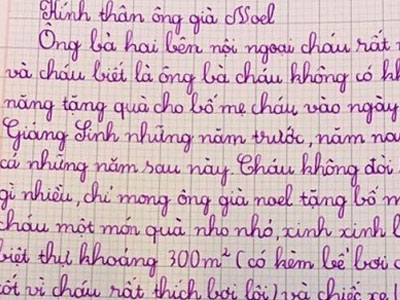 Kính thân ông già Noel
Ông bà hai bên nội ngoại cháu rất
và cháu biết là ông bà cháu không có kh
năng tặng quà cho bố mẹ cháu vào ngày
Giáng Sinh những năm trước, năm na
cả những năm sau này. Cháu không đòi
gì nhiều, chỉ mong ông già noel tặng bố m
cháu một món quà nho nhỏ, xinh xinh l
biệt thự khoảng 300m² (có kèm bể bơi c
tốt vì cháu rất thích bơi lội) và chiếc xe